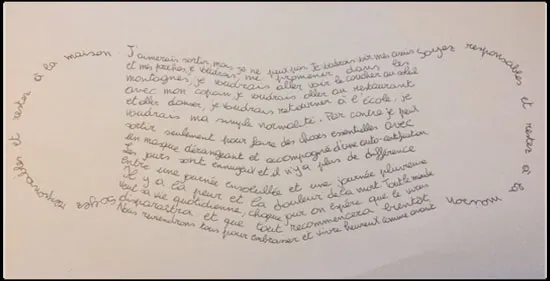 J'aimerais sortir, mais je ne peux pas. Je voudrais voir mes amis
et mes proches, je voudrais me promener dans les
montagnes, je voudrais aller voir le coucher du soleil
avec mon copain, je voudrais aller au restaurant
et aller danser, je voudrais retourner à l'école, je
voudrais ma simple normalité. Par contre je peux
sortir seulement pour faire des choses essentielles avec
un masque dérangeant et accompagné d'une auto-certification
Les jours sont ennuyeux et il n'y a plus de différence
entre une journée ensoleillée et une journée pluvieuse
Il y a la peur et la douleur de la mort. Tout le monde
veut sa vie quotidienne, chaque jour on espère que le virus
disparaîtra et que tout recommencera bientôt
Nous reviendrons tous pour embrasser et vivre heureux comme avant
Soyez responsables et restez à la maison
Soyez responsables et restez à la maison.